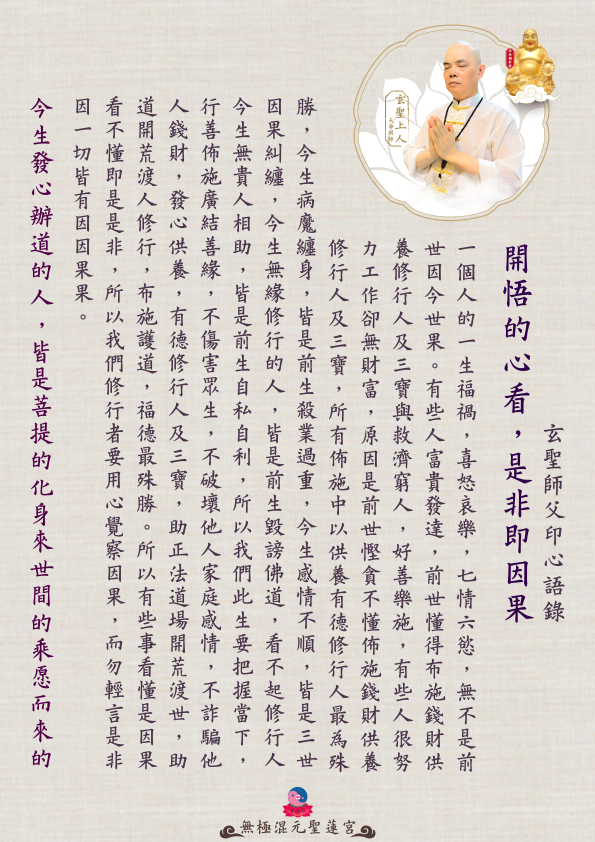 玄聖師父印心語錄
開悟的心看，是非即因果
一個人的一生福禍，喜怒哀樂，七情六慾，無不是前
世因今世果。有些人富貴發達，前世懂得布施錢財供
養修行人及三寶與救濟窮人，好善樂施，有些人很努
力工作卻無財富，原因是前世慳貪不懂佈施錢財供養
修行人及三寶，所有佈施中以供養有德修行人最為殊
勝，今生病魔纏身，皆是前生殺業過重，今生感情不順，皆是三世
因果糾纏，今生無緣修行的人，皆是前生毀謗佛道，看不起修行人
今生無貴人相助，皆是前生自私自利，所以我們此生要把握當下，
行善佈施廣結善緣，不傷害眾生，不破壞他人家庭感情，不詐騙他
人錢財，發心供養，有德修行人及三寶，助正法道場開荒渡世，助
道開荒渡人修行，布施護道，福德最殊勝。所以有些事看懂是因果
看不懂即是是非，所以我們修行者要用心覺察因果，而勿輕言是非
因一切皆有因因果果。
今生發心辦道的人，皆是菩提的化身來世間的乘愿而來的
玄聖上人
無極混元聖蓮宮